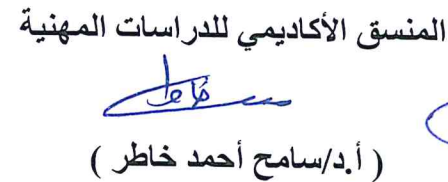 المنسق الأكاديمي للدراسات المهنية
( أ.د/سامح أحمد خاطر )